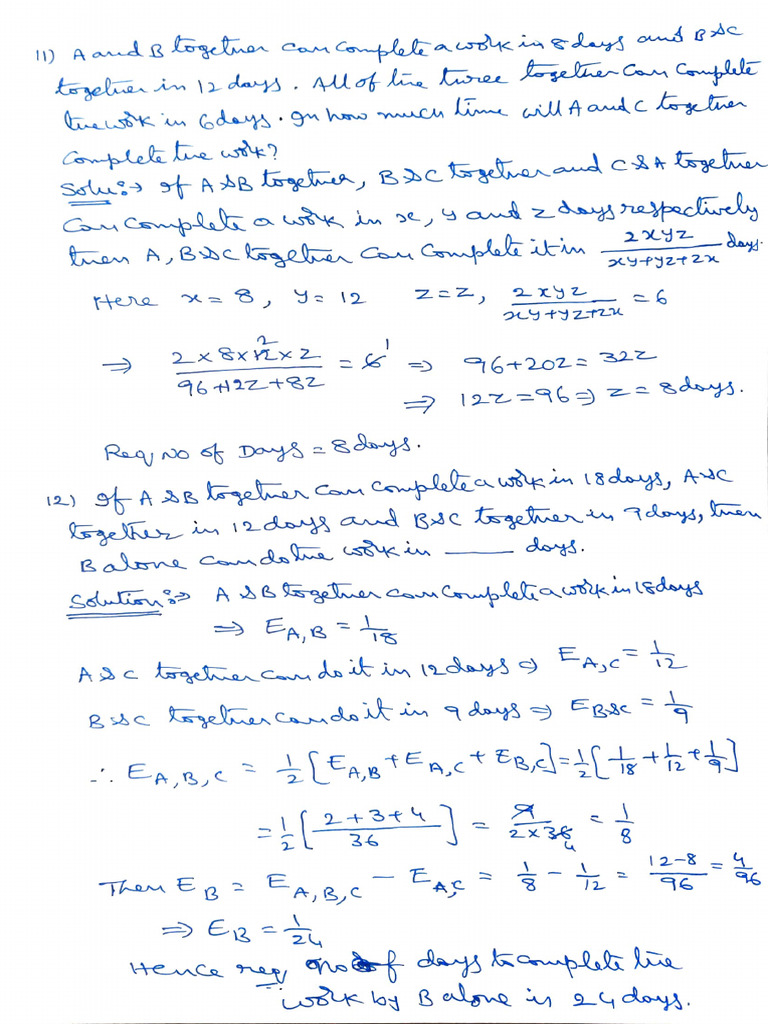 11) A and B together can complete a work in 8 days and B & C
together in 12 days. All of the three together can complete
the work in 6 days. In how much time will A and C together
complete the work?
Solu:→ If A & B together, B & C together and C & A together
can complete a work in x, y and z days respectively
then A, B & C together can complete it in 2xyz/(xy+yz+zx) days.
Here x = 8, y = 12 z = z, 2xyz/(xy+yz+zx) = 6
⇒ (2×8×12×z)/(96+12z+8z) = 6 ⇒ 96+20z = 32z
⇒ 12z = 96 ⇒ z = 8 days.
Req No of Days = 8 days.
12) If A & B together can complete a work in 18 days, A & C
together in 12 days and B & C together in 9 days, then
B alone can do the work in ___ days.
Solution:→ A & B together can complete a work in 18 days
⇒ E_A,B = 1/18
A & C together can do it in 12 days ⇒ E_A,C = 1/12
B & C together can do it in 9 days ⇒ E_B&C = 1/9
∴ E_A,B,C = 1/2 [E_A,B + E_A,C + E_B,C] = 1/2 [1/18 + 1/12 + 1/9]
= 1/2 [(2+3+4)/36] = 9/(2×36) = 1/8
Then E_B = E_A,B,C − E_A,C = 1/8 − 1/12 = (12−8)/96 = 4/96
⇒ E_B = 1/24
Hence req no of days to complete the
work by B alone is 24 days.